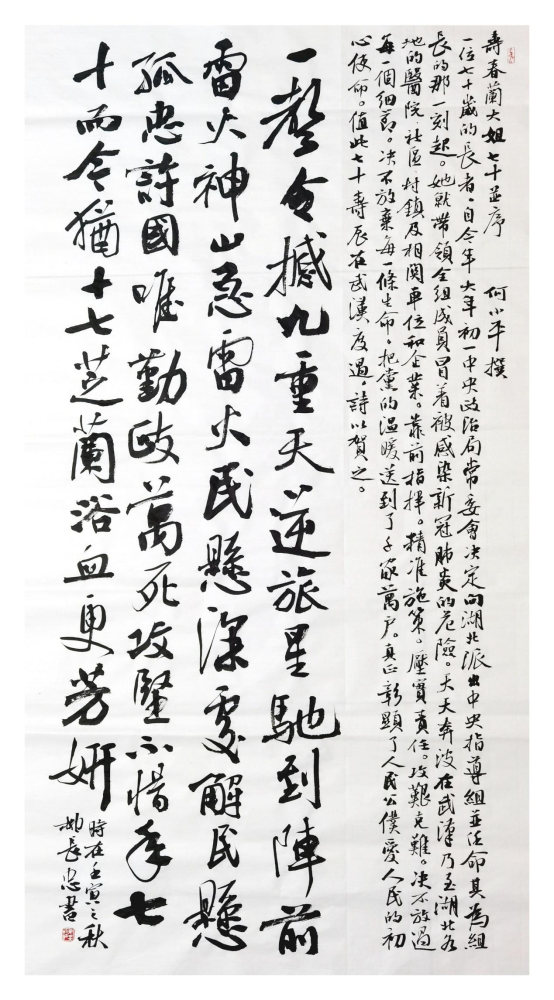 壽春蘭大姐七十並序 何小平撰
一位七十歲的長者。自今年大年初一中央政治局常委會决定向湖北派出中央指導組並任命其為組
長的那一刻起。她就帶領全組成員冒着被感染新冠肺炎的危險。天天奔波在武漢乃至湖北各
地的醫院社區村鎮及相関單位和企業。靠前指揮。精准施策。壓實責任。攻艱克難。决不放過
每一個細節。决不放棄每一條生命。把黨的温暖送到了千家萬户。真正彰顯了人民公僕愛人民的初
心使命。值此七十壽辰在武漢度過。詩以賀之。
一聲令撼九重天逆旅星馳到陣前
雷火神山急雷火民懸深處解民懸
孤忠許國唯勤政萬死攻堅不惜年七
十而今猶十七芝蘭浴血更芳妍
時在壬寅之秋
長忠書